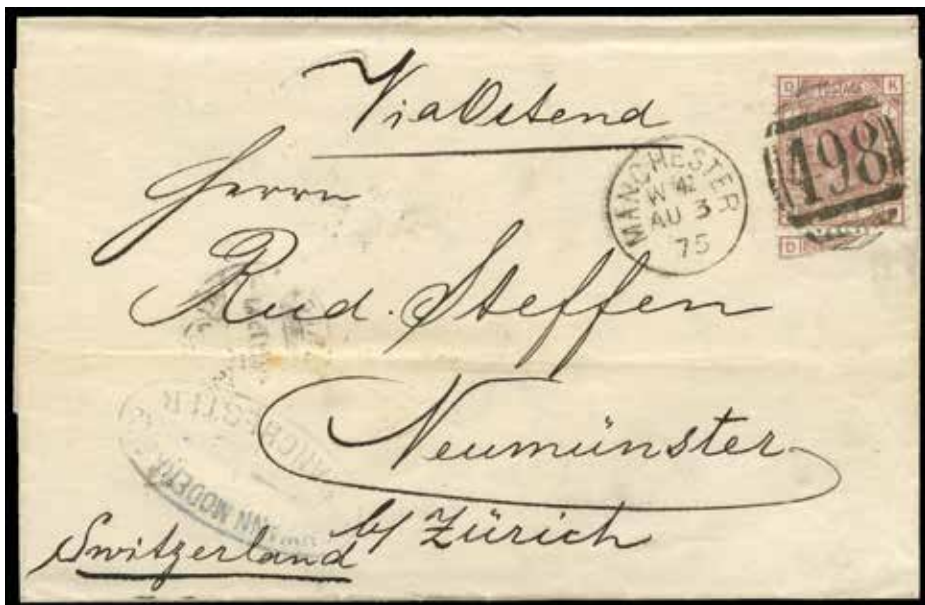 Via Ostend
Herrn
Rud. Steffen
Neumünster
b/ Zürich
Switzerland
MANCHESTER
W 42
AU 3
75
498
POSTAGE
K
D